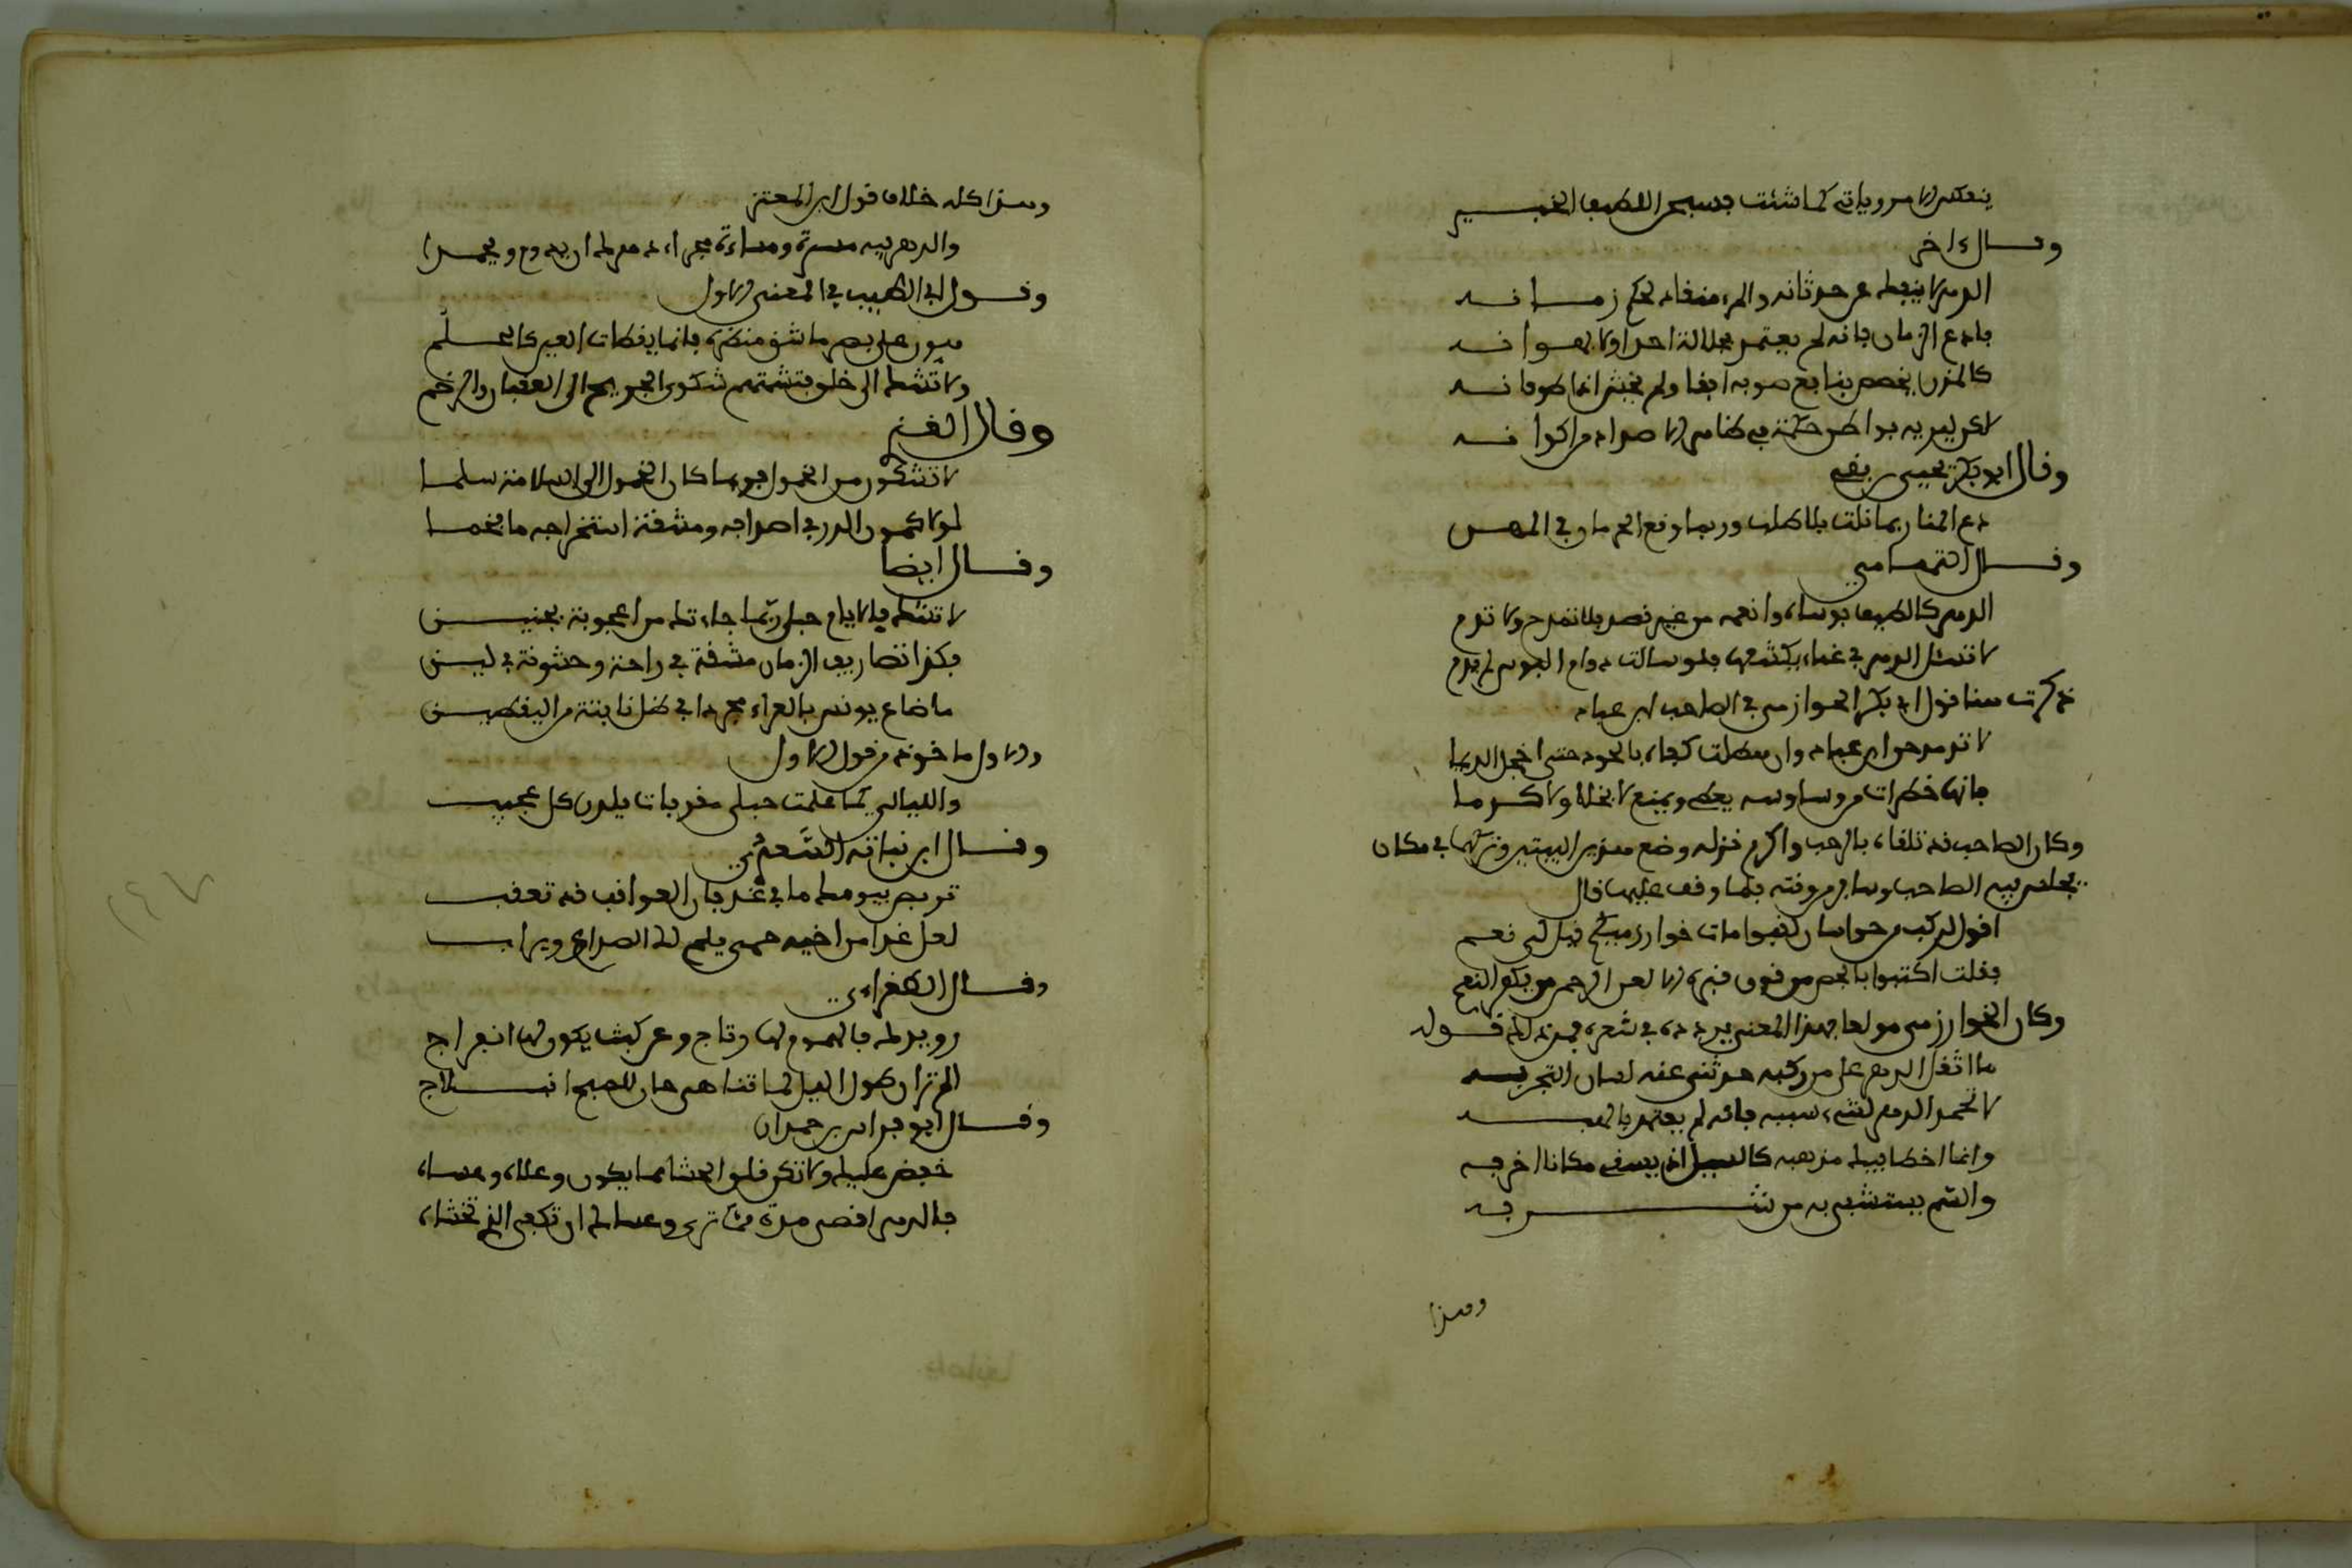 ينعكس الامر وياتي كما شئت فسبحان اللطيف الخبير
وقال ءاخر
الدهر لا ينفك عن حدثانه والمرء منقاد لحكم زمانه
فدع الزمان فانه لم يعتمد بجلاله احدا ولا بهوانه
كالمزن يخصص بنافع صوبه ابقا ولم يختر اذى طوفانه
لاكن لبريه بواطن حكمة في ظاهر الاضداد من اكوانه
وقال ابو بكر يحيى بن بقي
دع المنا ربما نلت بلا طلب وربما وقع الحرمان في المهن
وقال التهامي
الدهر كالطيف بوساه وانعمه من غير قصد فلا تمدح ولا تلم
لا تسئل الدهر في غماء يكشفها فلو سالت دوام البوس لم يدم
ذكرت هنا قول ابي بكر الخوارزمي في الصاحب ابن عباد
لا تمدحن ابن عباد وان هطلت كفاه بالجود حتى اخجل الديما
فانها خطرات من وساوسه يعطي ويمنع لا بخلا ولا كرما
وكان الصاحب قد تلقاه بالرحب واكرم نزله وضع هذين البيتين وتركهما في مكان
يجلس فيه الصاحب وسافر من وقته فلما وقف عليهما قال
اقول لركب من خراسان اقبلوا امات خوارزميكم قيل لي نعم
فقلت اكتبوا بالجص من فوق قبره الا لعن الرحمن من يكفر النعم
وكان الخوارزمي مولعا بهذا المعنى يردده في شعره فمن ذلك قوله
ما اثقل الدهر على من ركبه حدثني عنه لسان التجربه
لا تحمد الدهر لشيء سببه فانه لم يعتمد بالهبه
وانما اخطا فيك مذهبه كالسيل اذ يسقي مكانا اخربه
والسم يستشفي به من شربه
وهذا
وهذا كله خلاف قول ابن المعتز
والدهر فيه مسرة ومساءة فجزاء دهرك ان يذم ويحمدا
وقول ابي الطيب في المعنى الاول
هون على بصر ما شق منظره فانما يقظات العين كالحلم
ولا تشك الى خلق فتشمته شكوى الجريح الى العقبان والرخم
وقال الغزي
لا تشكون من الخمول فربما كان الخمول الى السلامة سلما
لولا كمون الدر في اصدافه ومشقة استخراجه ما فخما
وقال ايضا
لا تشك فالايام حبلى ربما جاءتك من اعجوبة بجنين
فكذا تصاريف الزمان مشقة في راحة وخشونة في لين
ما ضاع يونس بالعراء مجردا في ظل نابتة من اليقطين
والاول ماخوذ من قول الاول
والليالي كما علمت حبلى مقربات يلدن كل عجيب
وقال ابن نباتة السعدي
تربص بيومك ما في غد فان العواقب قد تعقب
لعل غدا من اخيه حمى يلم لك الصدع ويراب
وقال الطغراءي
رويدك فالهموم لها رتاج وعن كثب يكون لها انفراج
الم تر ان طول الليل لما تناهى حان للصبح انبلاج
وقال ابو فراس بن حمدان
خفض عليك ولا تكن قلق الحشا مما يكون وعله وعساه
فالدهر اقصر مدة مما ترى وعساك ان تكفى الذي تخشاه